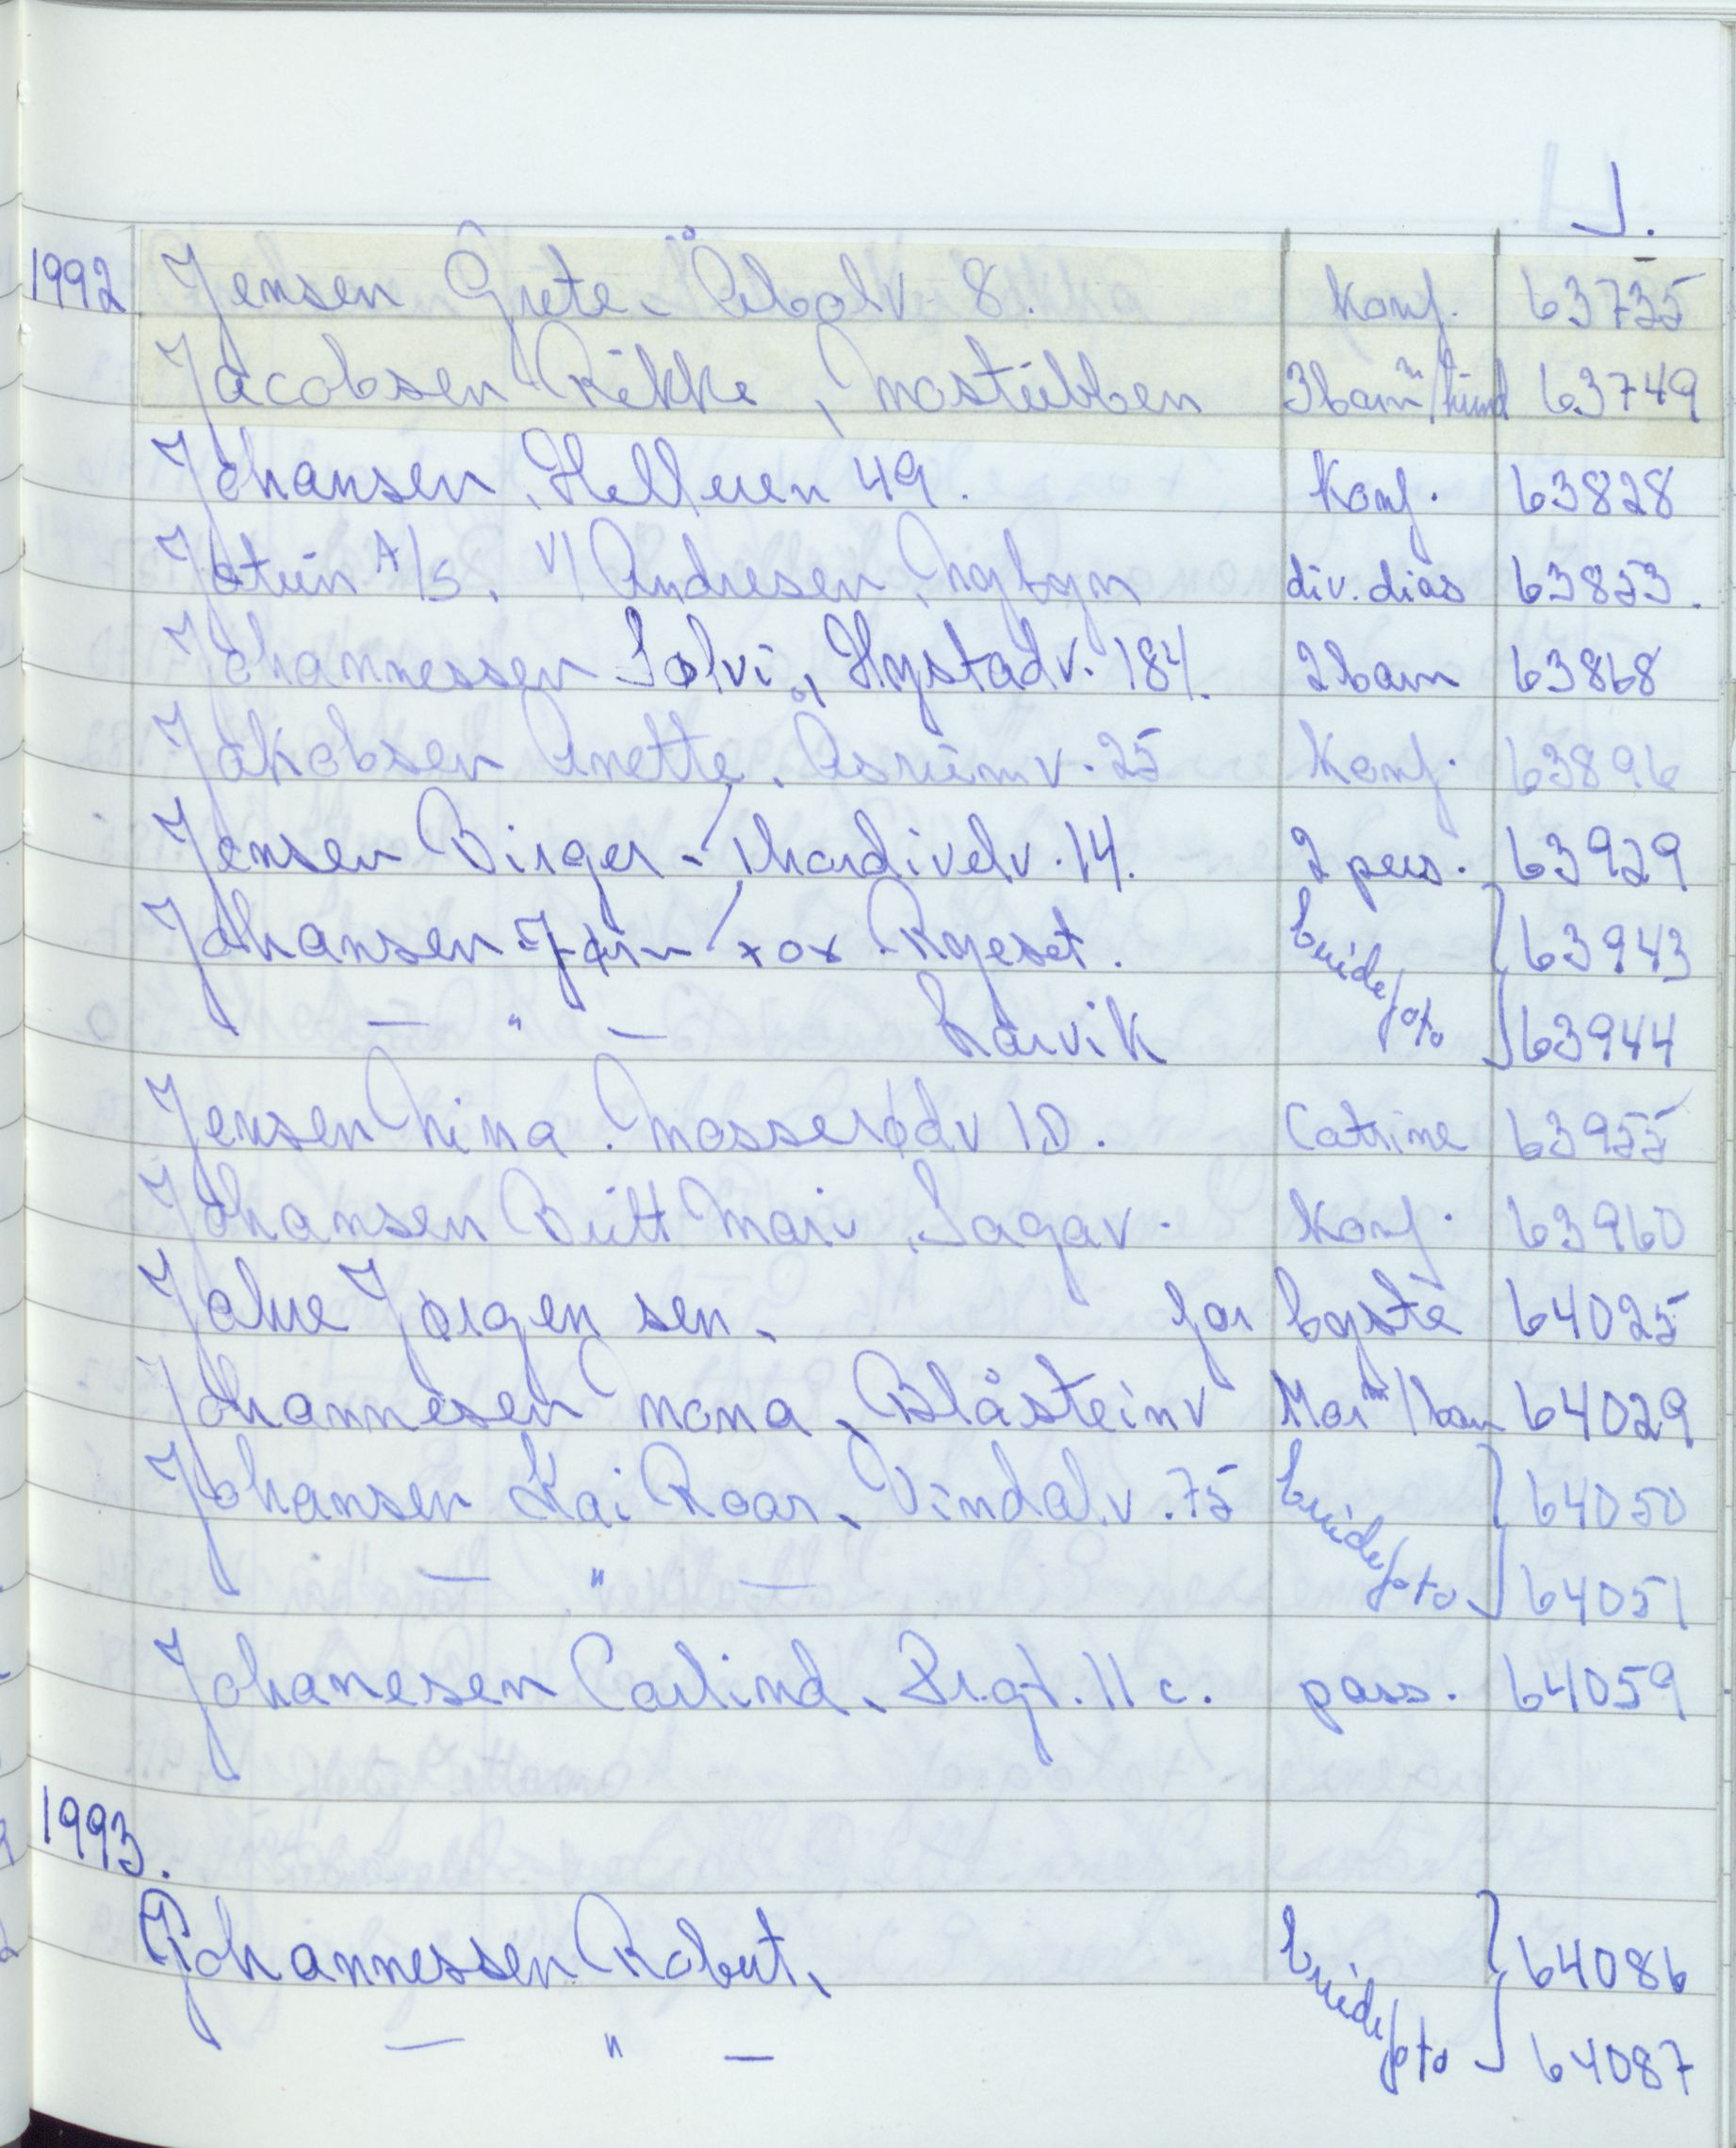 J.
1992 Jensen Grete. Åbolv. 8. Konf. 63735
Jacobsen Rikke, Mostubben 3 barn m/hund 63749
Johansen, Helleren 49. Konf. 63828
Jotun A/S. V/ Andresen, Nybyen div. dias 63853.
Johannessen Solvi, Hystadv. 184. 2 barn 63868
Jakobsen Anette. Åsrumv. 25 Konf. 63896
Jensen Birger - 14. 2 pers. 63929
Johansen Ryeset. brudefoto 63943
— " — Larvik 63944
Jensen Nina. Mosserødv 1D. Catrine 63955
Johansen Britt Mari, Sagav. Konf. 63960
Jahre Jørgen sen. for byste 64025
Johannesen Mona, Blåsteinv Mor m/barn 64029
Johansen Kai Roar. Vindalv. 75 brudefoto 64050
— " — 64051
Johanesen Carlind. Prgt. 11 c. pass. 64059
1993.
Johannessen Robert, brudefoto 64086
— " — 64087